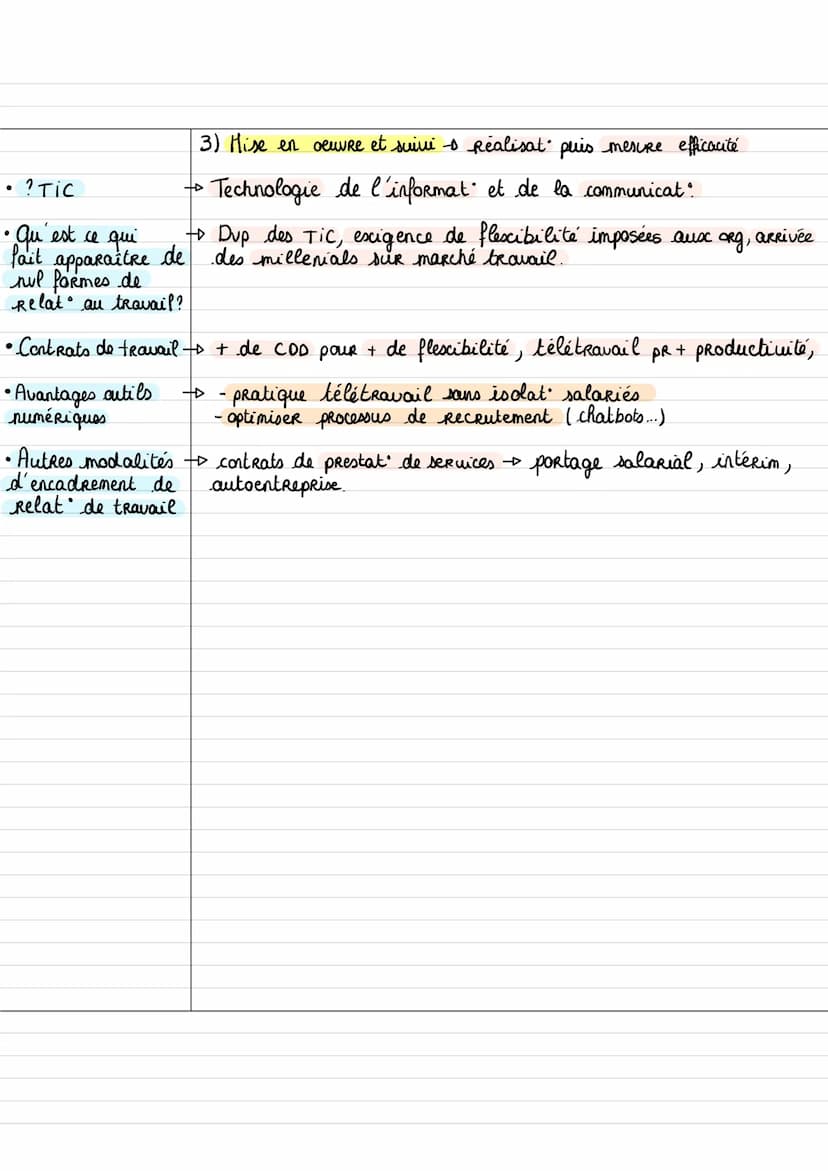 3) Mise en oeuvre et suivi → réalisat° puis mesure efficacité
• ? TiC → Technologie de l'informat° et de la communicat°
• Qu'est ce qui → Dvp des TiC, exigence de flexibilité imposées aux org, arrivée
fait apparaître de des millenials sur marché travail.
nvl formes de
relat° au travail?
• Contrats de travail → + de CDD pour + de flexibilité, télétravail pr + productivité,
• Avantages outils → - pratique télétravail sans isolat° salariés
numériques - optimiser processus de recrutement (chatbots...)
• Autres modalités → contrats de prestat° de services → portage salarial, intérim,
d'encadrement de autoentreprise.
relat° de travail